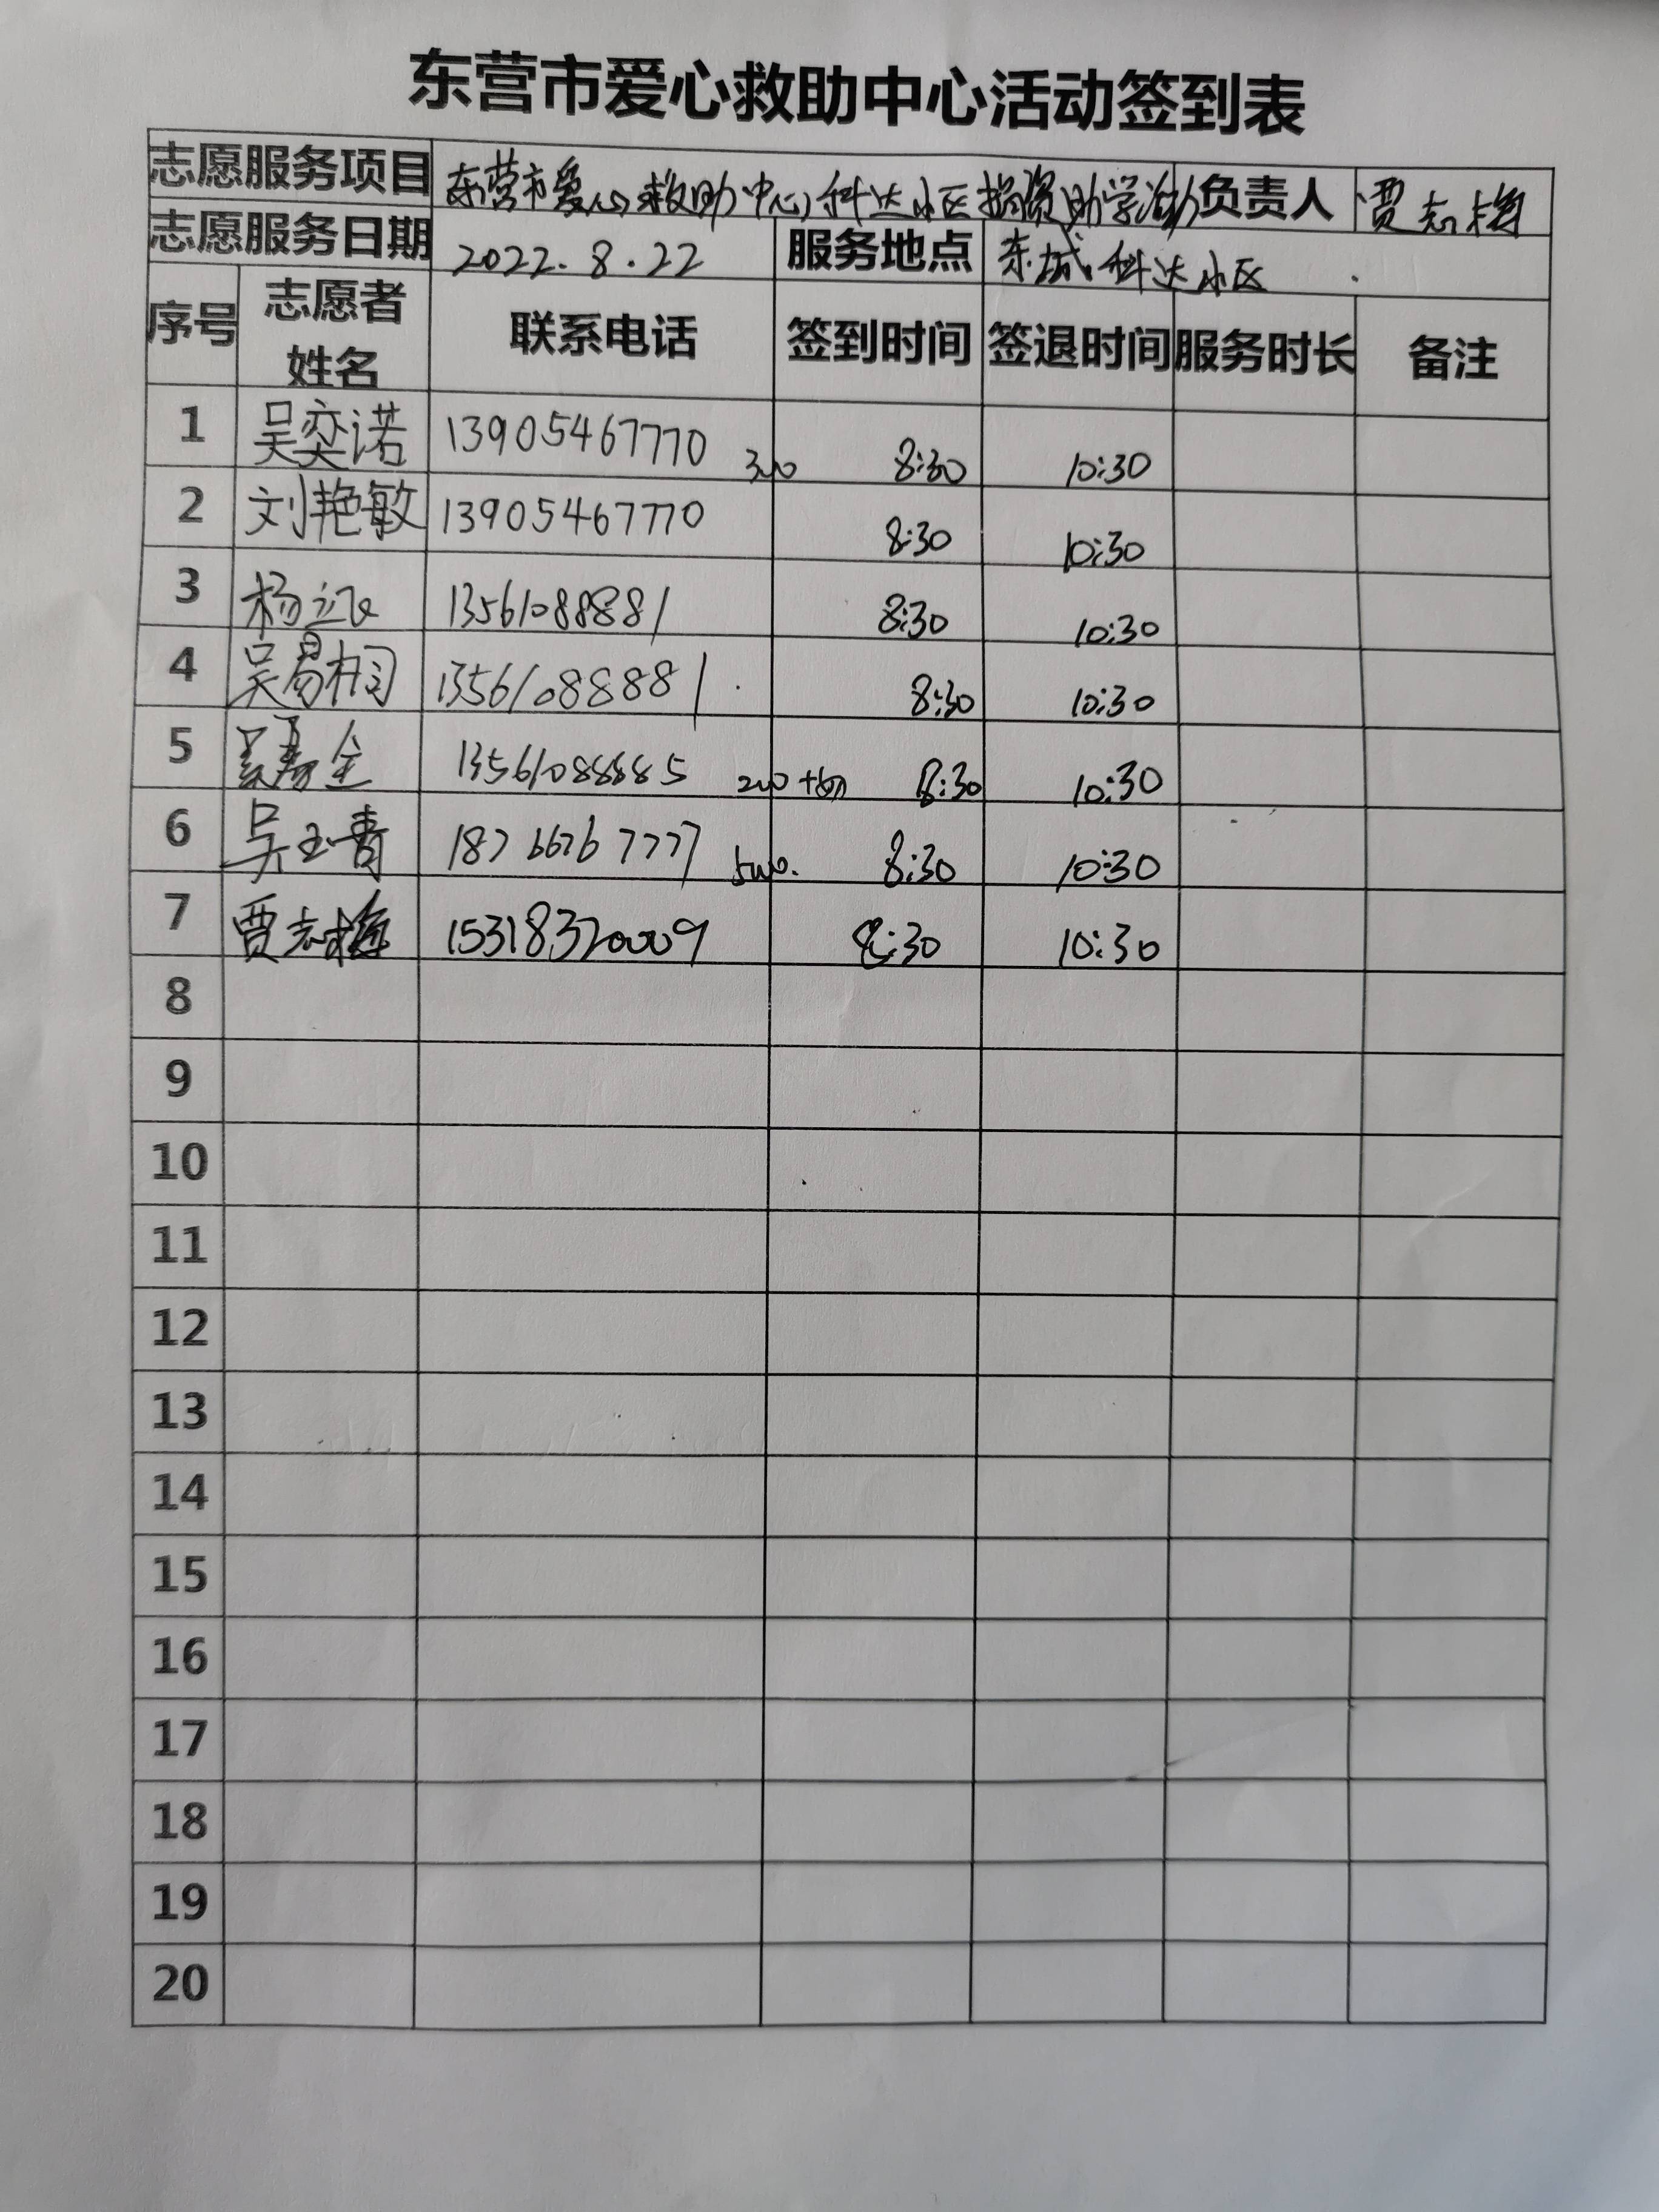 东营市爱心救助中心活动签到表
志愿服务项目 东营市爱心救助中心科达小区捐资助学活动 负责人 贾志梅
志愿服务日期 2022.8.22 服务地点 东城科达小区
序号 志愿者姓名 联系电话 签到时间 签退时间 服务时长 备注
1 吴奕诺 13905467770 300 8:30 10:30
2 刘艳敏 13905467770 8:30 10:30
3 杨 13561088881 8:30 10:30
4 吴易桐 13561088881 8:30 10:30
5 金 13561088885 200 8:30 10:30
6 吴玉青 18766767777 500. 8:30 10:30
7 贾志梅 15318320009 8:30 10:30
8
9
10
11
12
13
14
15
16
17
18
19
20